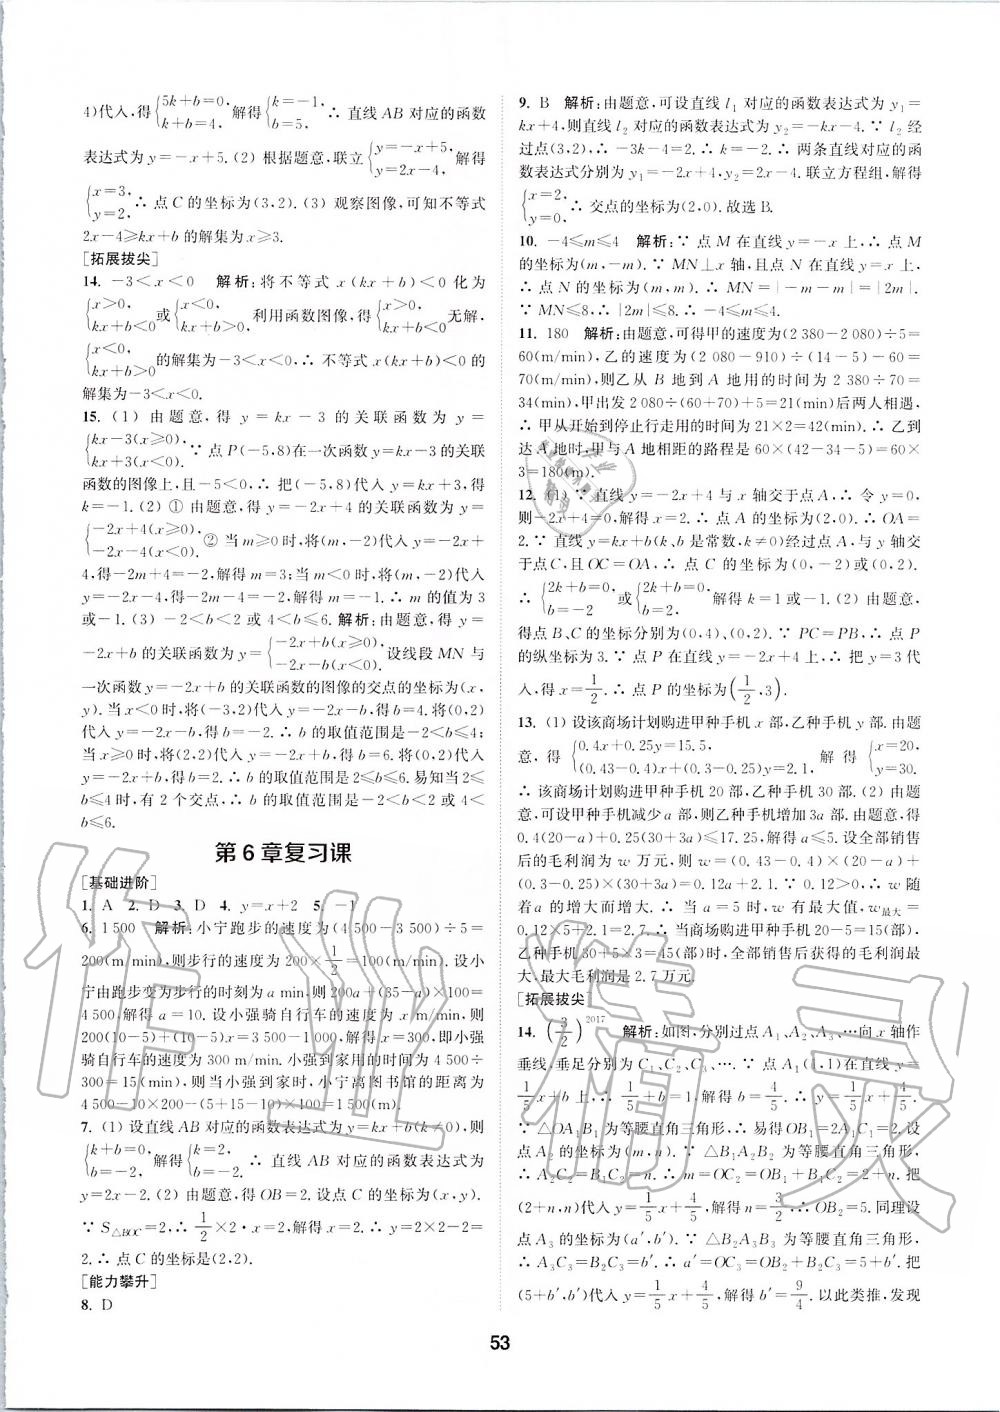 4)代入,得{5k+b=0, k+b=4, 解得{k=-1, b=5, ∴ 直线 AB 对应的函数
表达式为 y=-x+5. (2) 根据题意,联立{y=-x+5, y=2x-4, 解得
{x=3, y=2, ∴ 点 C 的坐标为(3,2). (3) 观察图像,可知不等式
2x-4≥kx+b 的解集为 x≥3.
[拓展拔尖]
14. -3<x<0 解析:将不等式 x(kx+b)<0 化为
{x>0, kx+b<0 或{x<0, kx+b>0, 利用函数图像,得{x>0, kx+b<0 无解,
{x<0, kx+b>0 的解集为-3<x<0. ∴ 不等式 x(kx+b)<0 的
解集为-3<x<0.
15. (1) 由题意,得 y=kx-3 的关联函数为 y=
{kx-3(x≥0), kx+3(x<0). ∵ 点 P(-5,8)在一次函数 y=kx-3 的关联
函数的图像上,且-5<0,∴ 把(-5,8)代入 y=kx+3,得
k=-1. (2) ① 由题意,得 y=-2x+4 的关联函数为 y=
{-2x+4(x≥0), -2x-4(x<0). ② 当 m≥0时,将(m,-2)代入 y=-2x+
4,得-2m+4=-2,解得 m=3;当 m<0时,将(m,-2)代入
y=-2x-4,得-2m-4=-2,解得 m=-1. ∴ m 的值为 3
或-1. (3) -2<b<2 或 4<b≤6. 解析:由题意,得 y=
-2x+b 的关联函数为 y={-2x+b(x≥0), -2x-b(x<0). 设线段 MN 与
一次函数 y=-2x+b 的关联函数的图像的交点的坐标为(x,
y). 当 x<0 时,将(-3,2)代入 y=-2x-b,得 b=4. 将(0,2)
代入 y=-2x-b,得 b=-2. ∴ b 的取值范围是-2<b≤4;
当 x≥0 时,将(2,2)代入 y=-2x+b,得 b=6. 将(0,2)代入
y=-2x+b,得 b=2. ∴ b 的取值范围是 2≤b≤6. 易知当 2≤
b≤4 时,有 2 个交点,∴ b 的取值范围是-2<b<2 或 4<
b≤6.
第 6 章复习课
[基础进阶]
1. A 2. D 3. D 4. y=x+2 5. -1
6. 1 500 解析:小宁跑步的速度为(4 500-3 500)÷5=
200(m/min),则步行的速度为 200×1/2=100(m/min). 设小
宁由跑步变为步行的时间为 a min,则 200a+(35-a)×100=
4 500,解得 a=10. 设小强骑自行车的速度为 x m/min,则
200×(10-5)+(10-5)x=3 500-1 000,解得 x=300,即小强
骑自行车的速度为 300 m/min. 小强到家用的时间为 4 500÷
300=15(min),则当小强到家时,小宁离图书馆的距离为
4 500-10×200-(5+15-10)×100=1 500(m).
7. (1) 设直线 AB 对应的函数表达式为 y=kx+b(k≠0),则
{k+b=0, b=-2, 解得{k=2, b=-2, ∴ 直线 AB 对应的函数表达式为
y=2x-2. (2) 由题意,得 OB=2. 设点 C 的坐标为(x,y).
∵ S△BOC=2,∴ 1/2×2·x=2,解得 x=2. ∴ y=2×2-2=
2. ∴ 点 C 的坐标是(2,2).
[能力攀升]
8. D
9. B 解析:由题意,可设直线 l₁ 对应的函数表达式为 y₁=
kx+4,则直线 l₂ 对应的函数表达式为 y₂=-kx-4. ∵ l₂ 经
过点(3,2),∴ -3k-4=2. ∴ k=-2. ∴ 两条直线对应的函
数表达式分别为 y₁=-2x+4,y₂=2x-4. 联立方程组,解得
{x=2, y=0, ∴ 交点的坐标为(2,0). 故选 B.
10. -4≤m≤4 解析:∵ 点 M 在直线 y=-x 上,∴ 点 M
的坐标为(m,-m). ∵ MN⊥x 轴,且点 N 在直线 y=x 上,
∴ 点 N 的坐标为(m,m). ∴ MN=|-m-m|=|2m|.
∵ MN≤8,∴ |2m|≤8. ∴ -4≤m≤4.
11. 180 解析:由题意,可得甲的速度为(2 380-2 080)÷5=
60(m/min),乙的速度为(2 080-910)÷(14-5)-60=
70(m/min),则乙从 B 地到 A 地用的时间为 2 380÷70=
34(min),甲出发 2 080÷(60+70)+5=21(min)后两人相遇,
∴ 甲从开始到停止行走用的时间为 21×2=42(min). ∴ 乙到
达 A 地时,甲与 A 地相距的路程是 60×(42-34-5)=60×
3=180(m).
12. (1) ∵ 直线 y=-2x+4 与 x 轴交于点 A,∴ 令 y=0,
则-2x+4=0,解得 x=2. ∴ 点 A 的坐标为(2,0). ∴ OA=
2. ∵ 直线 y=kx+b(k、b 是常数,k≠0)经过点 A,与 y 轴交
于点 C,且 OC=OA,∴ 点 C 的坐标为(0,-2)或(0,2).
∴ {2k+b=0, b=-2 或{2k+b=0, b=2, 解得 k=1 或-1. (2) 由题意,
得点 B、C 的坐标分别为(0,4)、(0,2). ∵ PC=PB,∴ 点 P
的纵坐标为 3. ∵ 点 P 在直线 y=-2x+4 上,∴ 把 y=3 代
入,得 x=1/2. ∴ 点 P 的坐标为(1/2,3).
13. (1) 设该商场计划购进甲种手机 x 部,乙种手机 y 部. 由题
意,得{0.4x+0.25y=15.5, (0.43-0.4)x+(0.3-0.25)y=2.1, 解得{x=20, y=30.
∴ 该商场计划购进甲种手机 20 部,乙种手机 30 部. (2) 由题
意,可设甲种手机减少 a 部,则乙种手机增加 3a 部. 由题意,得
0.4(20-a)+0.25(30+3a)≤17.25,解得 a≤5. 设全部销售
后的毛利润为 w 万元,则 w=(0.43-0.4)×(20-a)+
(0.3-0.25)×(30+3a)=0.12a+2.1. ∵ 0.12>0,∴ w 随
着 a 的增大而增大. ∴ 当 a=5 时,w 有最大值,w最大=
0.12×5+2.1=2.7. ∴ 当商场购进甲种手机 20-5=15(部),
乙种手机 30+5×3=45(部)时,全部销售后获得的毛利润最
大,最大毛利润是 2.7 万元.
[拓展拔尖]
14. (3/2)²⁰¹⁷ 解析:如图,分别过点 A₁、A₂、A₃…向 x 轴作
垂线,垂足分别为 C₁、C₂、C₃、…. ∵ 点 A₁(1,1)在直线 y=
1/5x+b 上,∴ 1/5+b=1,解得 b=4/5. ∴ y=1/5x+4/5.
∵ △OA₁B₁ 为等腰直角三角形,∴ 易得 OB₁=2A₁C₁=2. 设
点 A₂ 的坐标为(m,n). ∵ △B₁A₂B₂ 为等腰直角三角形,
∴ A₂C₂=B₁C₂=n. ∴ m=OC₂=OB₁+B₁C₂=2+n. 把
(2+n,n)代入 y=1/5x+4/5,解得 n=3/2,∴ OB₂=5. 同理设
点 A₃ 的坐标为(a′,b′). ∵ △B₂A₃B₃ 为等腰直角三角形,
∴ A₃C₃=B₂C₃=b′. ∴ a′=OC₃=OB₂+B₂C₃=5+b′. 把
(5+b′,b′)代入 y=1/5x+4/5,解得 b′=9/4. 以此类推,发现
53
作业精灵